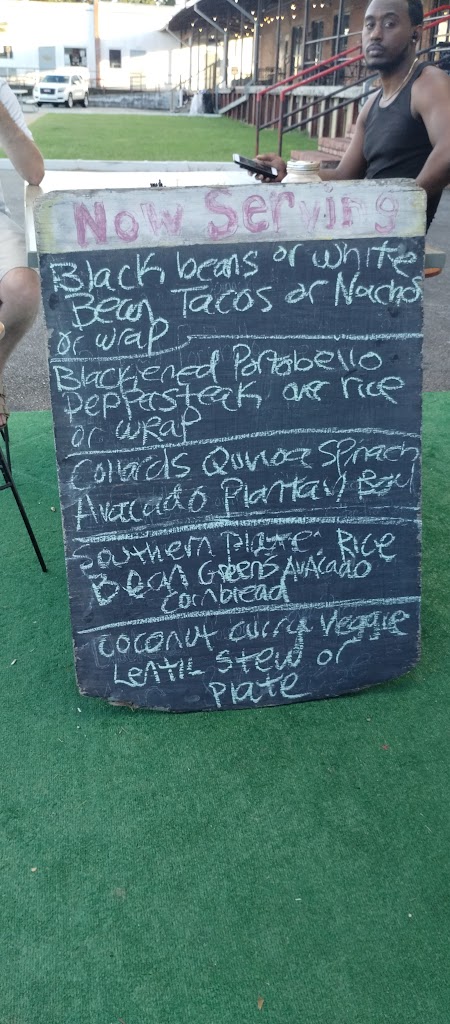 Now Serving
Black beans or white
Bean Tacos or Nachos
or wrap
Blackened Portobello
Peppersteak over rice
or wrap
Collards Quinoa Spinach
Avacado Plantain Bowl
Southern Plate: Rice
Bean Greens Avacado
Cornbread
Coconut curry Veggie
Lentil Stew or
Plate